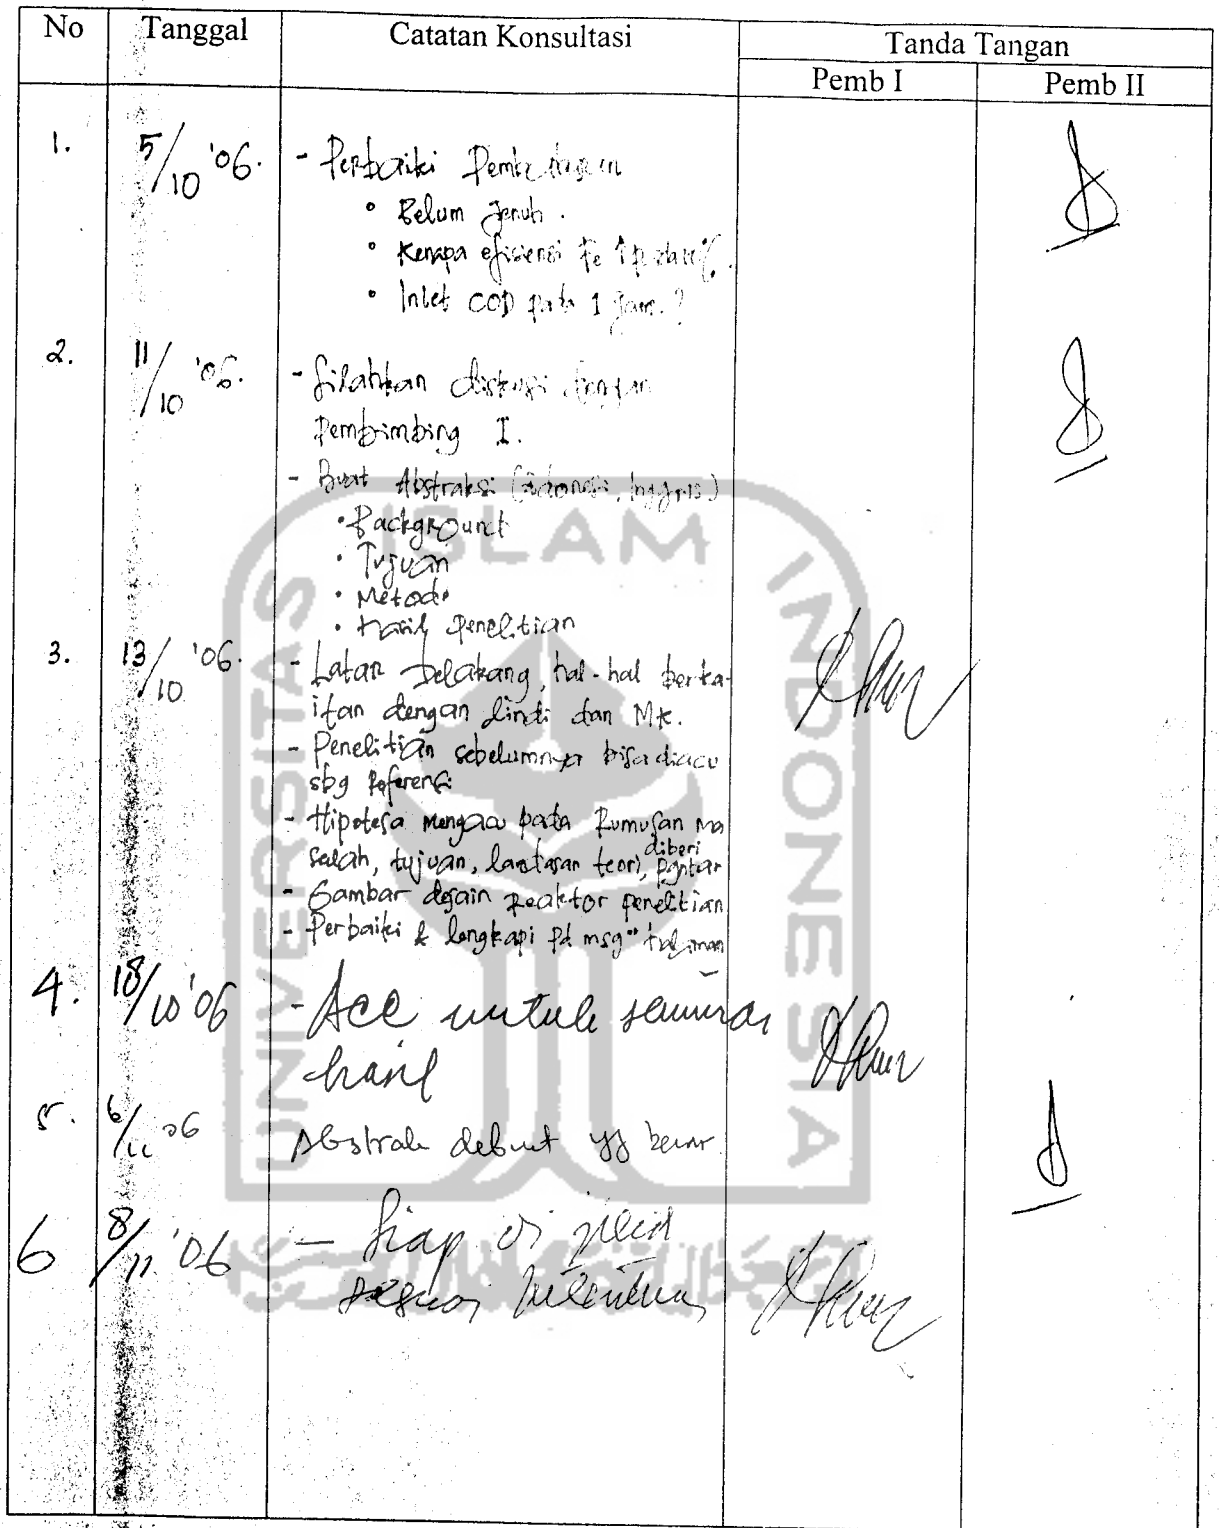 No Tanggal Catatan Konsultasi Tanda Tangan
Pemb I Pemb II
1. 5/10 '06. - Perbaiki Pembahasan
• Belum Jenuh.
• Kenapa efisiensi Fe
• Inlet COD pada 1 jam.?
2. 11/10 '06. - Silahkan diskusi dengan
Pembimbing I.
- Buat Abstraksi (Indonesia, Inggris)
• Background
• Tujuan
• Metode
• Hasil penelitian
3. 13/10 '06. - Latar belakang, hal-hal berka-
itan dengan lindi dan Mk.
- Penelitian sebelumnya bisa diacu
sbg Referensi
- Hipotesa mengacu pada Rumusan ma
salah, tujuan, landasan teori, diberi pgntar
- Gambar desain reaktor penelitian
- Perbaiki & lengkapi pd msg" halaman
4. 18/10 '06 - Acc untuk seminar
hasil
5. 6/11 06 Abstrak debuat yg benar
6 8/11 '06 - Siap di jilid
sesuai
UNIVERSITAS ISLAM INDONESIA